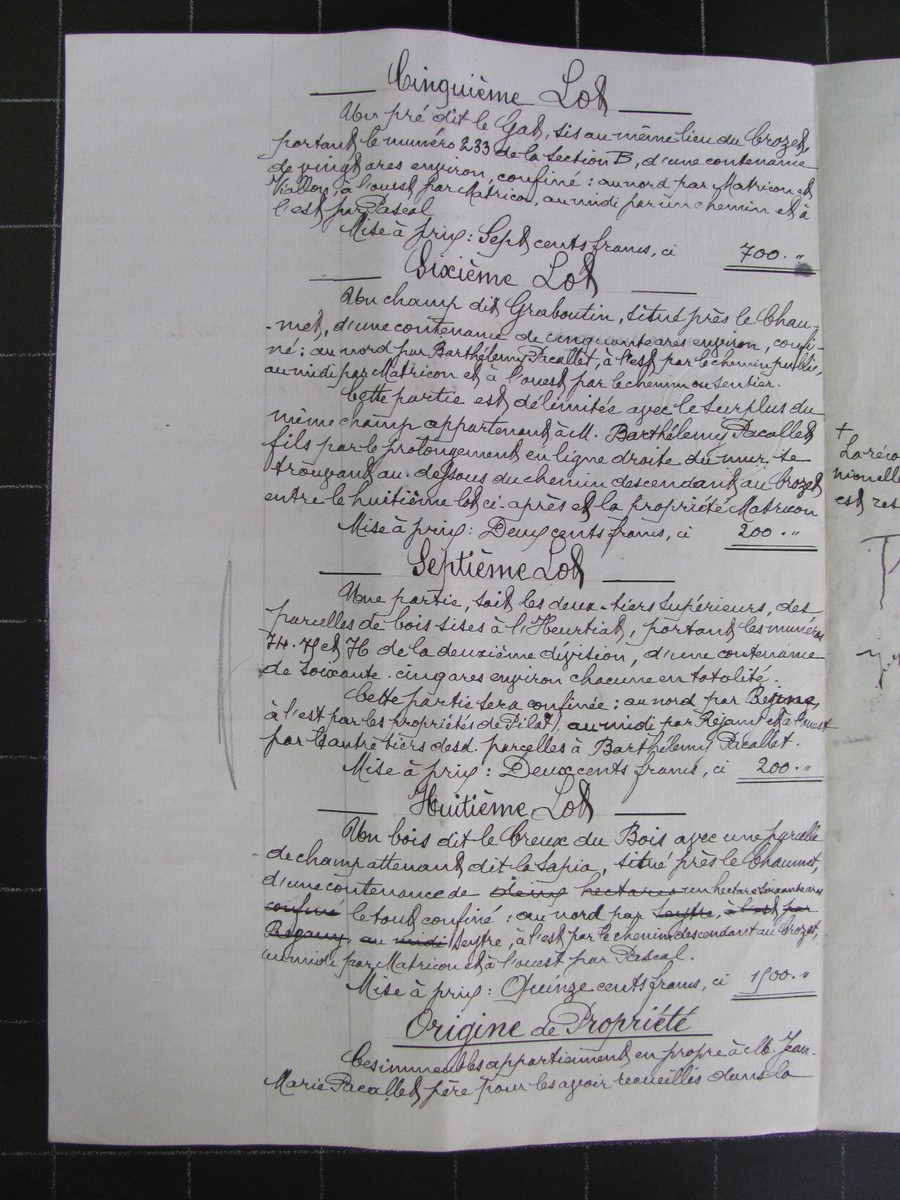 Cinquième Lot
Un pré dit le Gat, sis au même lieu du Crozet,
portant le numéro 233 de la section B, d'une contenance
de vingt ares environ, confiné : au nord par Matricon et
Vialloy, à l'ouest par Matricon, au midi par un chemin et à
l'est par Pascal
Mise à prix : Sept cents francs, ci 700.„
Sixième Lot
Un champ dit Graboutin, situé près le Chau-
-met, d'une contenance de cinquante ares environ, confi-
né : au nord par Barthélemy Pacallet, à l'est par le chemin public,
au midi par Matricon et à l'ouest par le chemin ou sentier.
Cette partie est délimitée avec le surplus du
même champ appartenant à M. Barthélemy Pacallet
fils par le prolongement en ligne droite du mur se
trouvant au-dessous du chemin descendant au Crozet
entre le huitième lot ci-après et la propriété Matricon
Mise à prix : Deux cents francs, ci 200.„
Septième Lot
Une partie, soit les deux-tiers supérieurs, des
parcelles de bois sises à l'Heurtiat, portant les numéros
74. 75 et 76 de la deuxième division, d'une contenance
de soixante-cinq ares environ chacune en totalité.
Cette partie sera confinée : au nord par
à l'est par les propriétés de Pilat, au midi par Réjanit et à l'ouest
par l'autre tiers desd. parcelles à Barthélemy Pacallet.
Mise à prix : Deux cents francs, ci 200.„
Huitième Lot
Un bois dit le Creux du Bois avec une parcelle
de champ attenant dit la Sapia, situé près le Chaumet,
d'une contenance de deux hectares un hectare soixante ares
confiné le tout confiné : au nord par Seytre, à l'est par
au midi Seytre, à l'est par le chemin descendant au Crozet,
au midi par Matricon et à l'ouest par Pascal.
Mise à prix : Quinze cents francs, ci 1500.„
Origine de Propriété
Ces immeubles appartiennent en propre à M. Jean-
Marie Pacallet père pour les avoir recueillis dans la
+
La réco
nionelle
est res